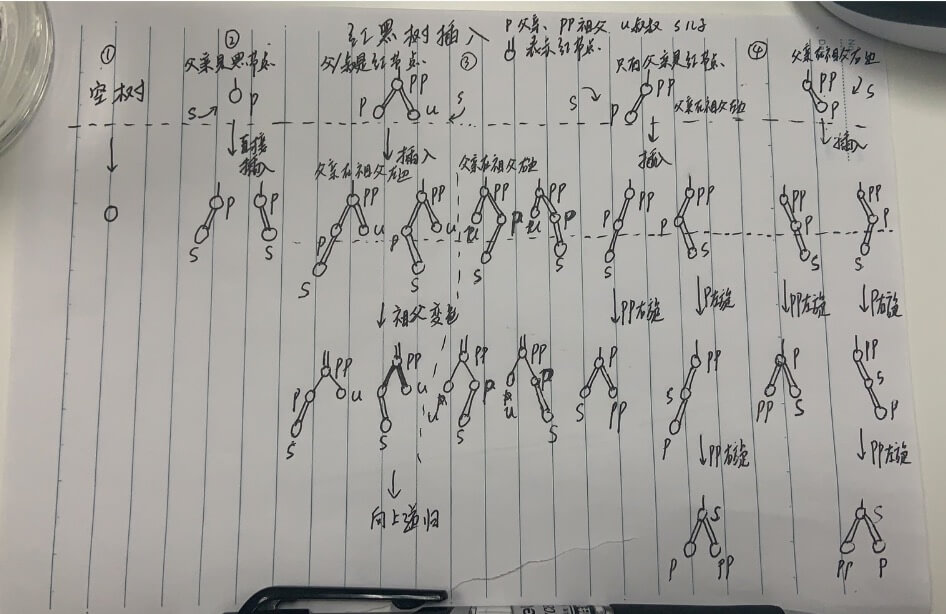 红黑树插入
P父亲、PP祖父 U叔叔 S儿子
表示红节点.
①
空树
②
父亲是黑节点.
P
S
直接
插入
P
S
P
S
③
父/叔是红节点.
PP
P
U
S
插入
父亲在祖父左边
父亲在祖父右边
PP
P
U
S
PP
P
U
S
PP
U
P
S
PP
U
P
S
祖父变色
PP
P
U
S
PP
U
S
PP
U
P
S
PP
U
P
S
向上递归
④
只有父亲是红节点.
PP
S
P
父亲在祖父左边
插入
父亲在祖父右边
PP
P
S
插入
PP
P
S
PP
P
S
PP
P
S
PP
P
S
PP右旋
P左旋
PP左旋
P右旋
P
S
PP
PP
S
P
P
PP
S
PP
S
P
PP右旋
PP左旋
S
P
PP
S
PP
P